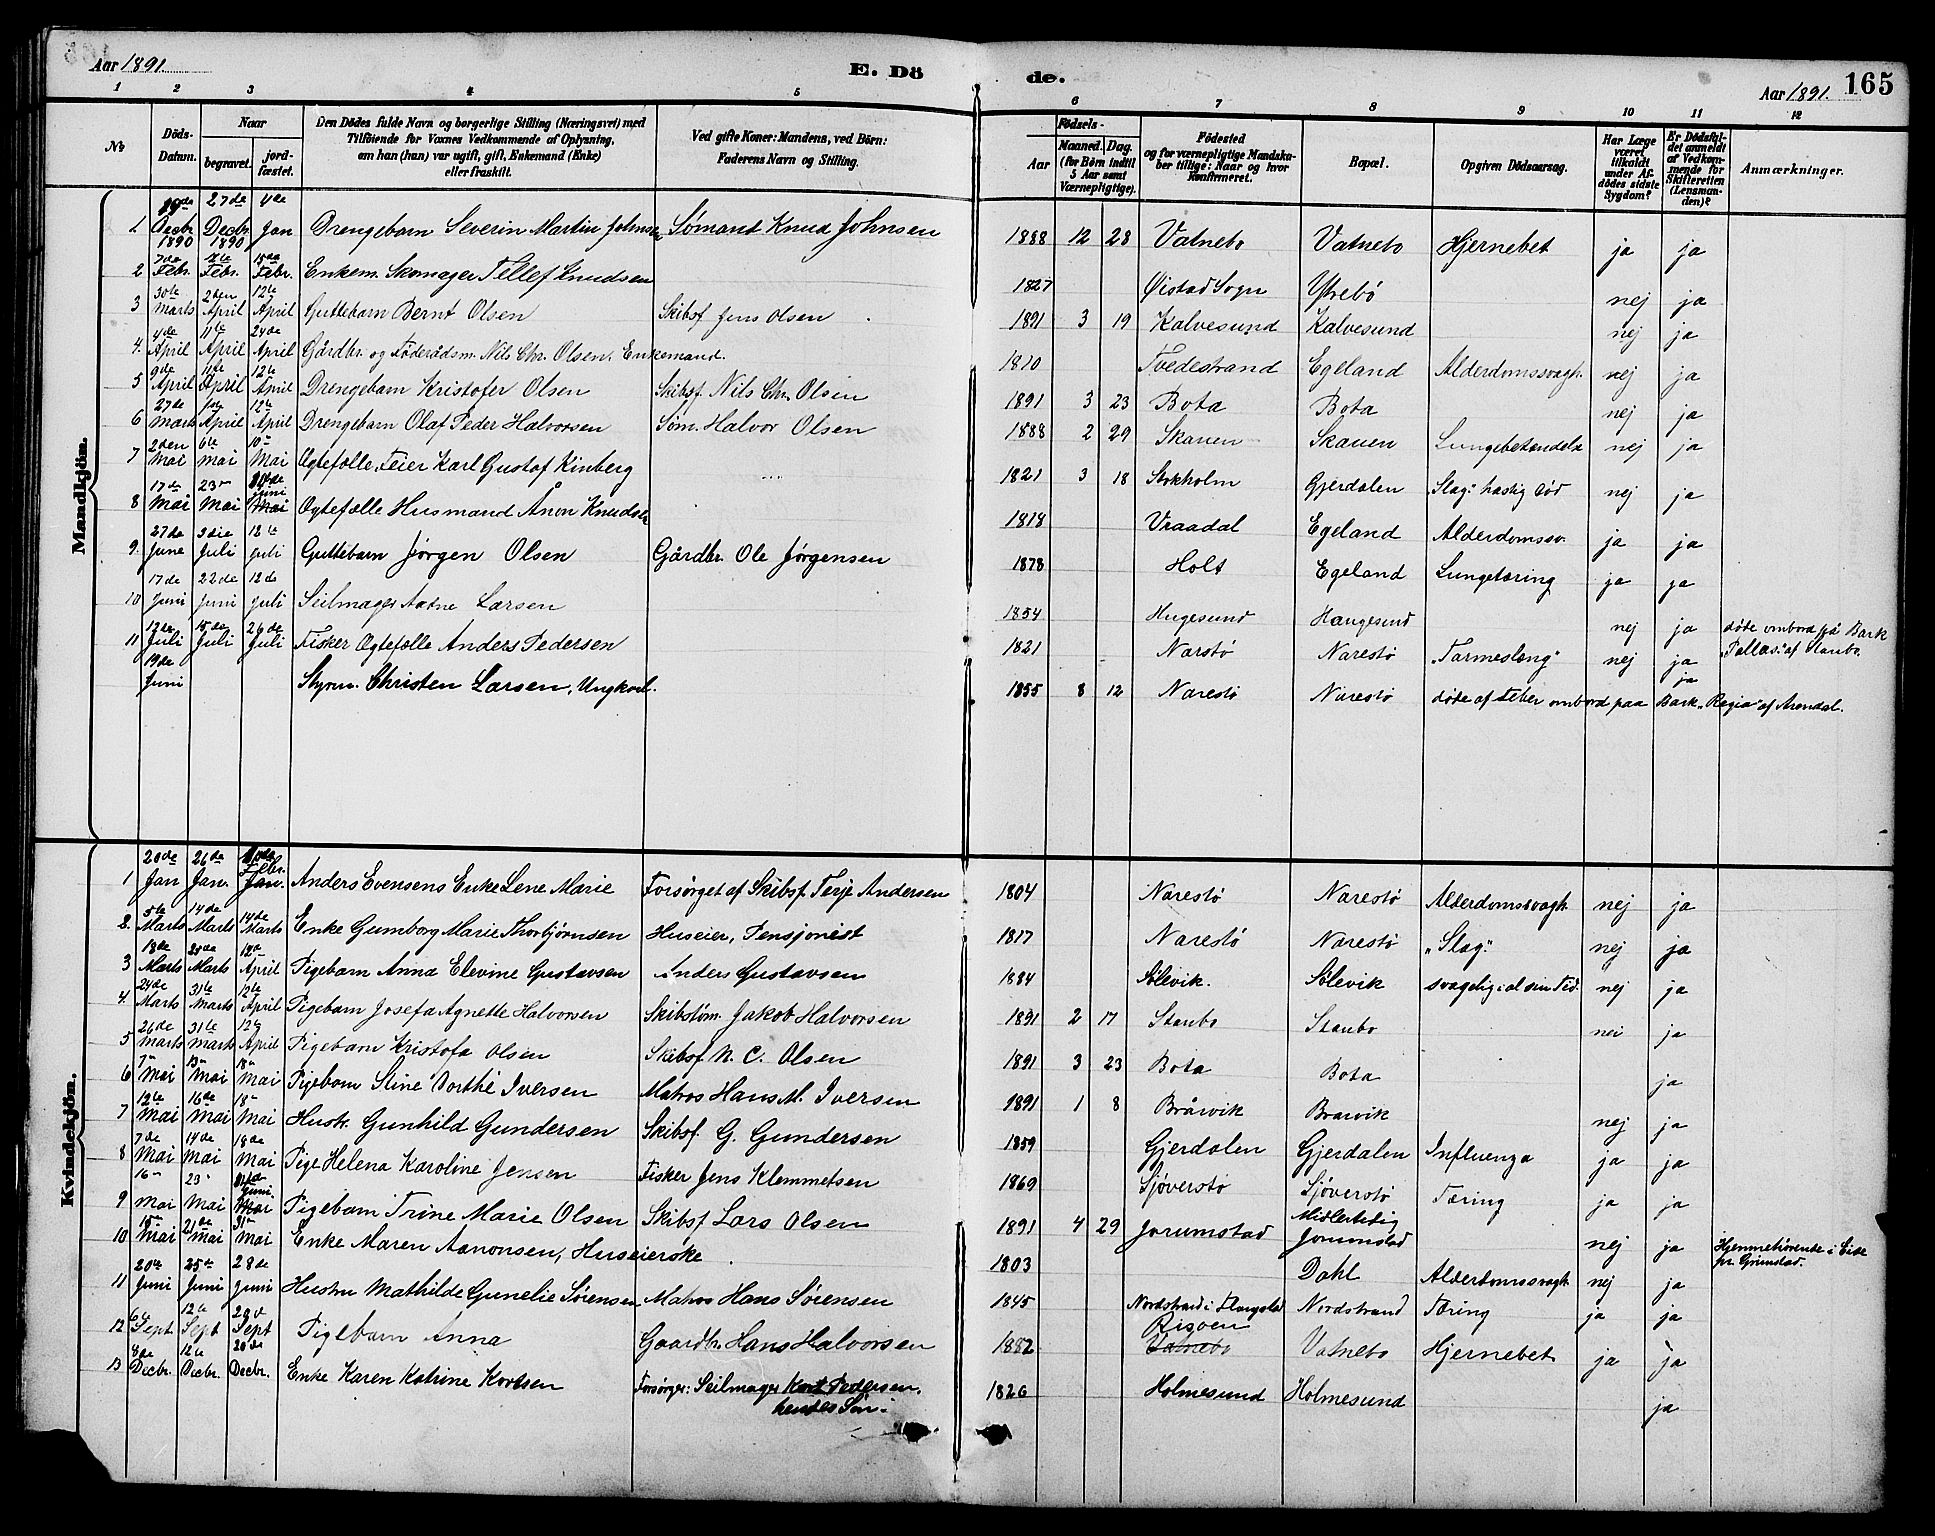 Aar 1891. E. Dö de. Aar 1891. 165
1 2 3 4 5 6 7 8 9 10 11 12
No
Döds-Datum.
Naar
begravet.
jordfæstet.
Den Dödes fulde Navn og borgerlige Stilling (Næringsvei) med
Tilföiende for Voxnes Vedkommende af Oplysning,
om han (hun) var ugift, gift, Enkemand (Enke)
eller fraskilt.
Ved gifte Koner: Mandens, ved Börn:
Faderens Navn og Stilling.
Födsels-
Aar
Maaned. Dag.
(for Börn indtil
5 Aar samt
Værnepligtige).
Födested
og for værnepligtige Mandskaber tillige: Naar og hvor
Konfirmeret.
Bopæl.
Opgiven Dödsaarsag.
Har Læge
været
tilkaldt
under Afdödes sidste
Sygdom?
Er Dödsfaldet anmeldt
af Vedkommende for
Skifteretten
(Lensmanden)?
Anmærkninger.
Mandkjön.
1 19de Decbr. 1890 27de Decbr. 1890 4de Jan Drengebarn Severin Martin Johnsen Sømand Knud Johnsen 1888 12 28 Vatnebo Vatnebo Hjernebet ja ja
2 7de Febr. Febr. 15de Febr. Enkem. Skomager Tellef Knudsen 1827 Øistad Sogn Ytrebö nej ja
3 30te Marts 2den April 12te April Guttebarn Bernt Olsen Skibsf. Jens Olsen 1891 3 19 Kalvesund Kalvesund nej ja
4. 4de April 11te April 24de April Gårdbr. og Føderådsm. Nils Chr. Olsen. Enkemand. 1810 Tvedestrand Egeland Alderdomssvagh. nej ja
5 9de April 11te April 12te April Drengebarn Kristofer Olsen Skibsf. Nils Chr. Olsen 1891 3 23 Bota Bota nej ja
6 27de Marts 1ste April 12te April Drengebarn Olaf Peder Halvorsen Søm. Halvor Olsen 1888 2 29 Skauen Skauen Lungebetændelse nej ja
7 2den Mai 6te Mai 10 Mai Ogtefolle, Feier Karl Gustaf Kinberg 1821 3 18 Stokholm Gjerdalen Slag: hastig död nej ja
8 17de Mai 23 Mai Juni Mai Ogtefælle Husmand Ånon Knudsen 1818 Vraadal Egeland Alderdomssv. ja ja
9. 27de June 3die Juli 12te Juli Guttebarn Jørgen Olsen Gårdbr. Ole Jørgensen 1878 Holt Egeland Lungetæring ja ja
10 17de Juni 22de Juni 12de Juli Seilmager Aadne Larsen 1854 Hugesund Haugesund nej ja døde ombord på Bark "Pallas" af Staubo.
11 12te Juli 15de Juli 26de Juli Fisker Ogtefælle Anders Pedersen 1821 Narstö Narestö "Tarmeslæng" nej ja
19de Juni Styrm. Christen Larsen, Ungkarl. 1855 8 12 Narestö Narestö døde af Feber ombord paa Bark "Regia" af Arendal. ja
Kvindekjön.
1 20de Jan 26de Jan. Febr. Jan. Anders Evensens Enke Lene Marie Forsørget af Skibsf. Terje Andersen 1804 Narestö Narestö Alderdomssvagh. nej ja
2. 5te Marts 14de Marts 14de Marts Enke Gumborg Marie Thorbjørnsen Huseier, Pensjonist 1817 Narestö Narestö "Slag". nej ja
3 18de Marts Marts 12te April Pigebarn Anna Elevine Gustavsen Anders Gustavsen 1884 Sølevik. Sølevik svagelig i al sin Tid. nej ja
4. 24de Marts 31te Marts 12te April Pigebarn Josefa Agnette Halvorsen Skibstøm. Jakob Halvorsen 1891 2 17 Staubo Staubo nei ja
5 26de Marts 31te Marts 12te April Pigebarn Kristofa Olsen Skibsf. N. C. Olsen 1891 3 23 Bota Bota ja
6 7 Mai 13 Mai 18 Mai Pigebarn Stine Dorthé Iversen Matros Hans M. Iversen 1891 1 8 Brårvik Brarvik nej ja
7 12te Mai 16de Mai 18 Mai Hustr. Gunhild Gundersen Skibsf. G. Gundersen 1859 Gjerdalen Gjerdalen Influenza ja ja
8 7de Mai 14de Mai 18de Mai Pige Helena Karoline Jensen Fisker Jens Klemmetsen 1869 Sjöverstö Sjöverstö Tæring ja ja
9 16 Mai 23 Mai Juni Mai Pigebarn Trine Marie Olsen Skibsf. Lars Olsen 1891 4 29 Jorumstad Midlertidig Jorumstad nej ja Hjemmehörende i Eide pr. Grimstad.
10 15 Mai 21de Mai 31 Mai Enke Maren Aanonsen, Huseierske 1803 Dahl Alderdomssvagh. nej ja
11 20te Juni 25te Juni 28de Juni Hustru Mathilde Gunelie Sörensen Matros Hans Sörensen 1845 Nordstrand i Nordstrand Tæring ja ja
12 6te Sept 12te Sept 20d Sept Pigebarn Anna Gaardbr. Hans Halvorsen 1882 Risøen Vatnebo Vatnebo Hjernebet. ja ja
13 8de Decbr. 12te Decbr. 20de Decbr. Enke Karen Katrine Kortsen Forsørger: Seilmager Kort Pedersen, hendes Sön. 1826 Holmesund Holmesund ja